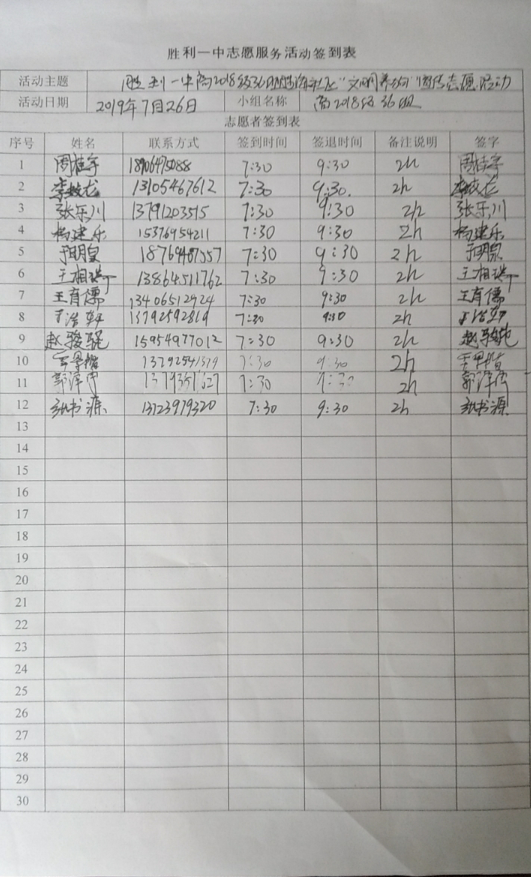 胜利一中志愿服务活动签到表
活动主题 胜利一中高2018级36班 社区"文明养 "宣传志愿活动
活动日期 2019年7月26日 小组名称 高2018级36班
志愿者签到表
序号 姓名 联系方式 签到时间 签退时间 备注说明 签字
1 周桂宇 7:30 9:30 2h 周桂宇
2 李 龙 13105467612 7:30 9:30. 2h 李 龙
3 张乐川 13791203515 7:30 9:30 2h 张乐川
4 杨建乐 15376954211 7:30 9:30 2h 杨建乐
5 7:30 9:30 2h
6 王相 13864511762 7:30 9:30 2h 王相
7 王育儒 13406512924 7:30 9:30 2h 王育儒
8 13792592819 7:30 9:30 2h
9 赵骏 15954977012 7:30 9:30 2h 赵骏
10 7:30 9:30 2h
11 郭泽 7:30 9:30 2h 郭泽
12 张书源 13723979320 7:30 9:30 2h 张书源
13
14
15
16
17
18
19
20
21
22
23
24
25
26
27
28
29
30